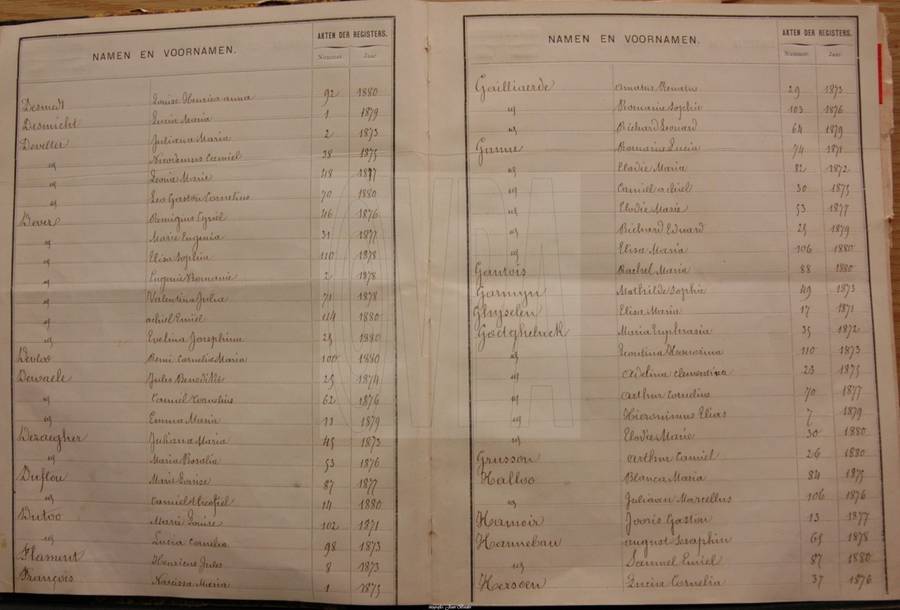 NAMEN EN VOORNAMEN. AKTEN DER REGISTERS.
Nummer. Jaar.
Desmedt Louise Henrica anna 92 1880
Desmicht Lucia Maria 1 1879
Develter Juliana Maria 2 1873
id Nicodemus Camiel 38 1875
id Leonie Marie 48 1877
id Leo Gaston Cornelius 70 1880
Dever Remigius Cyriel 46 1876
id Marie Eugenia 31 1877
id Elisa Sophia 110 1878
id Eugenia Romania 2 1878
id Valentina Julia 71 1878
id achiel Emiel 114 1880
id Evelina Josephina 25 1880
Devloo Remi Cornelis Maria 100 1880
Dewaele Jules Benedikte 25 1874
id Camiel Cornelius 62 1876
id Emma Maria 11 1879
Dezaegher Juliana Maria 45 1873
id Maria Rosalia 53 1876
Duflou Marie Louise 87 1877
id Camiel 14 1880
Dutoo Marie Louise 102 1871
id Lucia Cornelia 98 1873
Flament Henricus Jules 8 1873
François Narcissa Maria 1 1875
NAMEN EN VOORNAMEN. AKTEN DER REGISTERS.
Nummer. Jaar.
Gailliaerde Amatus Renatus 29 1873
id Romanie Sophie 103 1876
id Richard Leonard 64 1879
Ganne Romanie Lucia 74 1871
id Elodie Maria 82 1872
id Camiel achiel 30 1875
id Elodie Marie 53 1877
id Richard Eduard 25 1879
id Elisa Maria 106 1880
Gantois Rachel Maria 88 1880
Garmyn Mathilde Sophie 49 1873
Ghyselen Elisa Maria 17 1871
Goetghebuck Maria Euphrasia 35 1872
id Leontina 110 1873
id Adelina Clementina 23 1875
id Arthur Cornelius 70 1877
id Hieronimus Elias 7 1879
id Elodie Marie 30 1880
Grusson Arthur Camiel 26 1880
Halloo Blanca Maria 84 1875
id Juliaan Marcellus 106 1876
Hamoir Jooris Gaston 13 1877
Hannebau august Seraphin 65 1878
id Samuel Emiel 87 1880
Hersoen Lucia Cornelia 37 1876